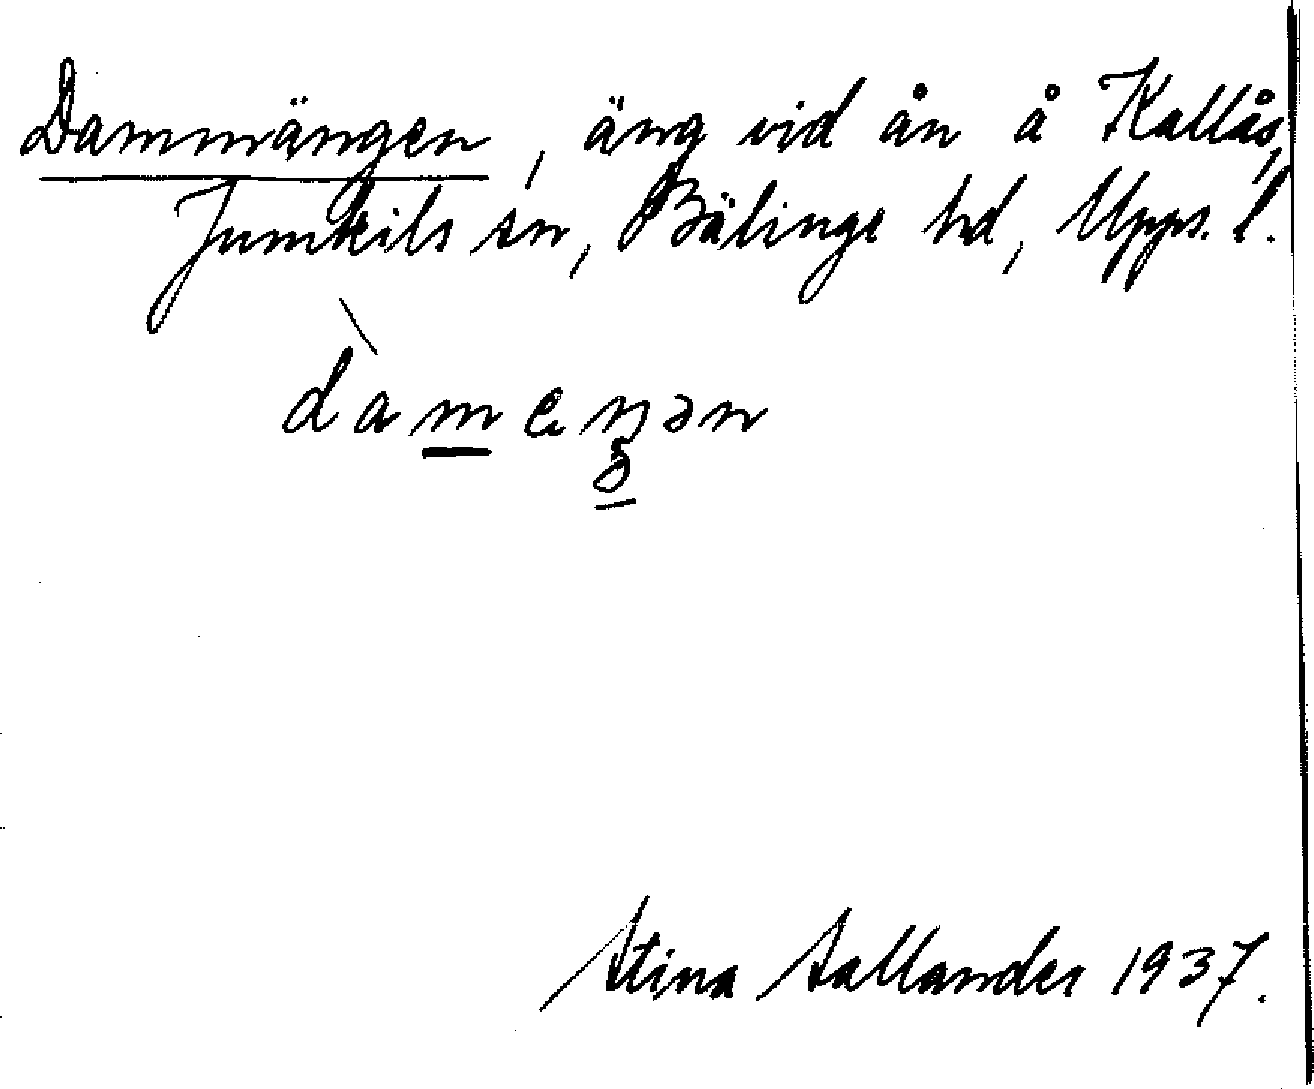 Dammängen, äng vid ån å Kallås,
Jumkils sn, Bälinge hd, Upps. l.
dàmeŋən
Stina Sallander 1937.